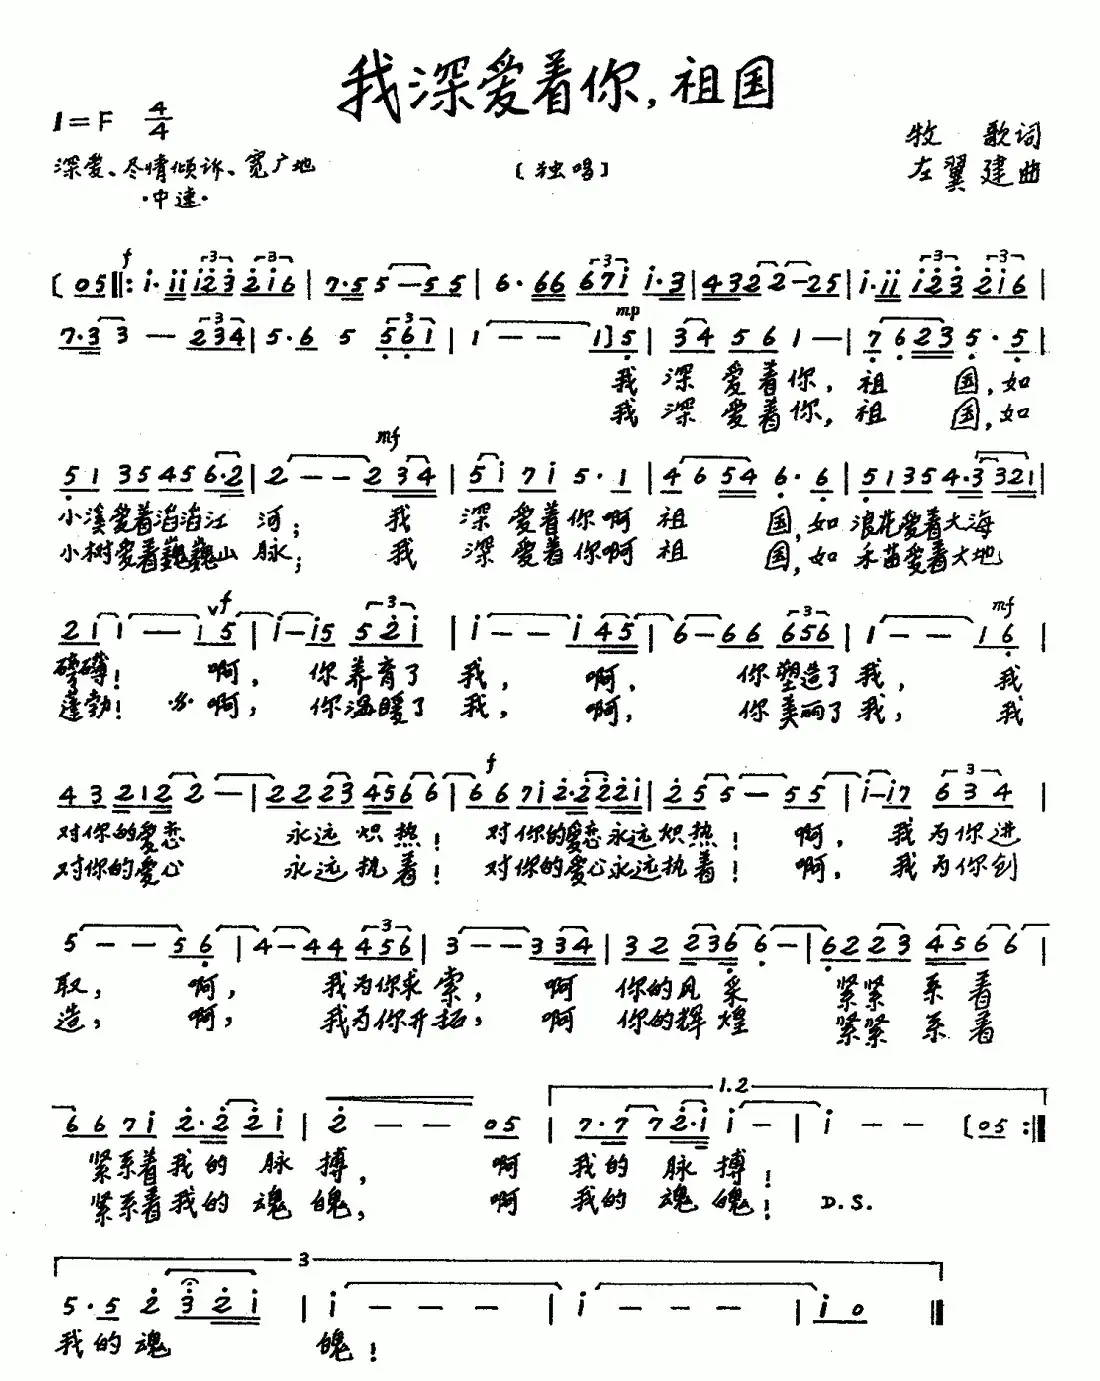 我深爱着你,祖国
1=F 4/4
牧 歌词
深爱、尽情倾诉、宽广地
〔独唱〕
左翼建曲
·中速·
f
〔05‖: i·ii i23 2i6 | 7·5 5—55 | 6·66 67i i·3 | 4322—25 | i·ii i23 2i6 |
mp
7·3 3 — 234 | 5·6 5 561 | 1 — — 1〕5 | 34 56 1 — | 7623 5·5 |
我深爱着你,祖国,如
我深爱着你,祖国,如
mf
51 35 45 6·2 | 2 — — 2 34 | 5i 7i 5·1 | 46 54 6·6 | 51 35 4·3 321 |
小溪爱着滔滔江河;我深爱着你啊祖国,如浪花爱着大海
小树爱着巍巍山脉;我深爱着你啊祖国,如禾苗爱着大地
vf
mf
2i i — i5 | i—i5 52i | i — — i 45 | 6—66 656 | 1 — — 16 |
磅礴!啊,你养育了我,啊,你塑造了我,我
蓬勃!啊,你温暖了我,啊,你美丽了我,我
f
43 212 2 — | 22 23 456 6 | 66 7i 2·2 22i | 25 5 — 55 | i—i7 634 |
对你的爱恋永远炽热!对你的爱恋永远炽热!啊,我为你进
对你的爱心永远执着!对你的爱心永远执着!啊,我为你创
5 — — 56 | 4—44 456 | 3 — — 3 34 | 32 236 6 — | 62 23 456 6 |
取,啊,我为你求索,啊你的风采紧紧系着
造,啊,我为你开拓,啊你的辉煌紧紧系着
1.2
66 7i 2·2 2i | 2 — — 05 | 7·7 72·i i — | i — — 〔05 :‖
紧系着我的脉搏,啊我的脉搏;
紧系着我的魂魄,啊我的魂魄! D.S.
3
5·5 2 3 2i | i — — — | i — — — | i 0 ‖
我的魂魄!